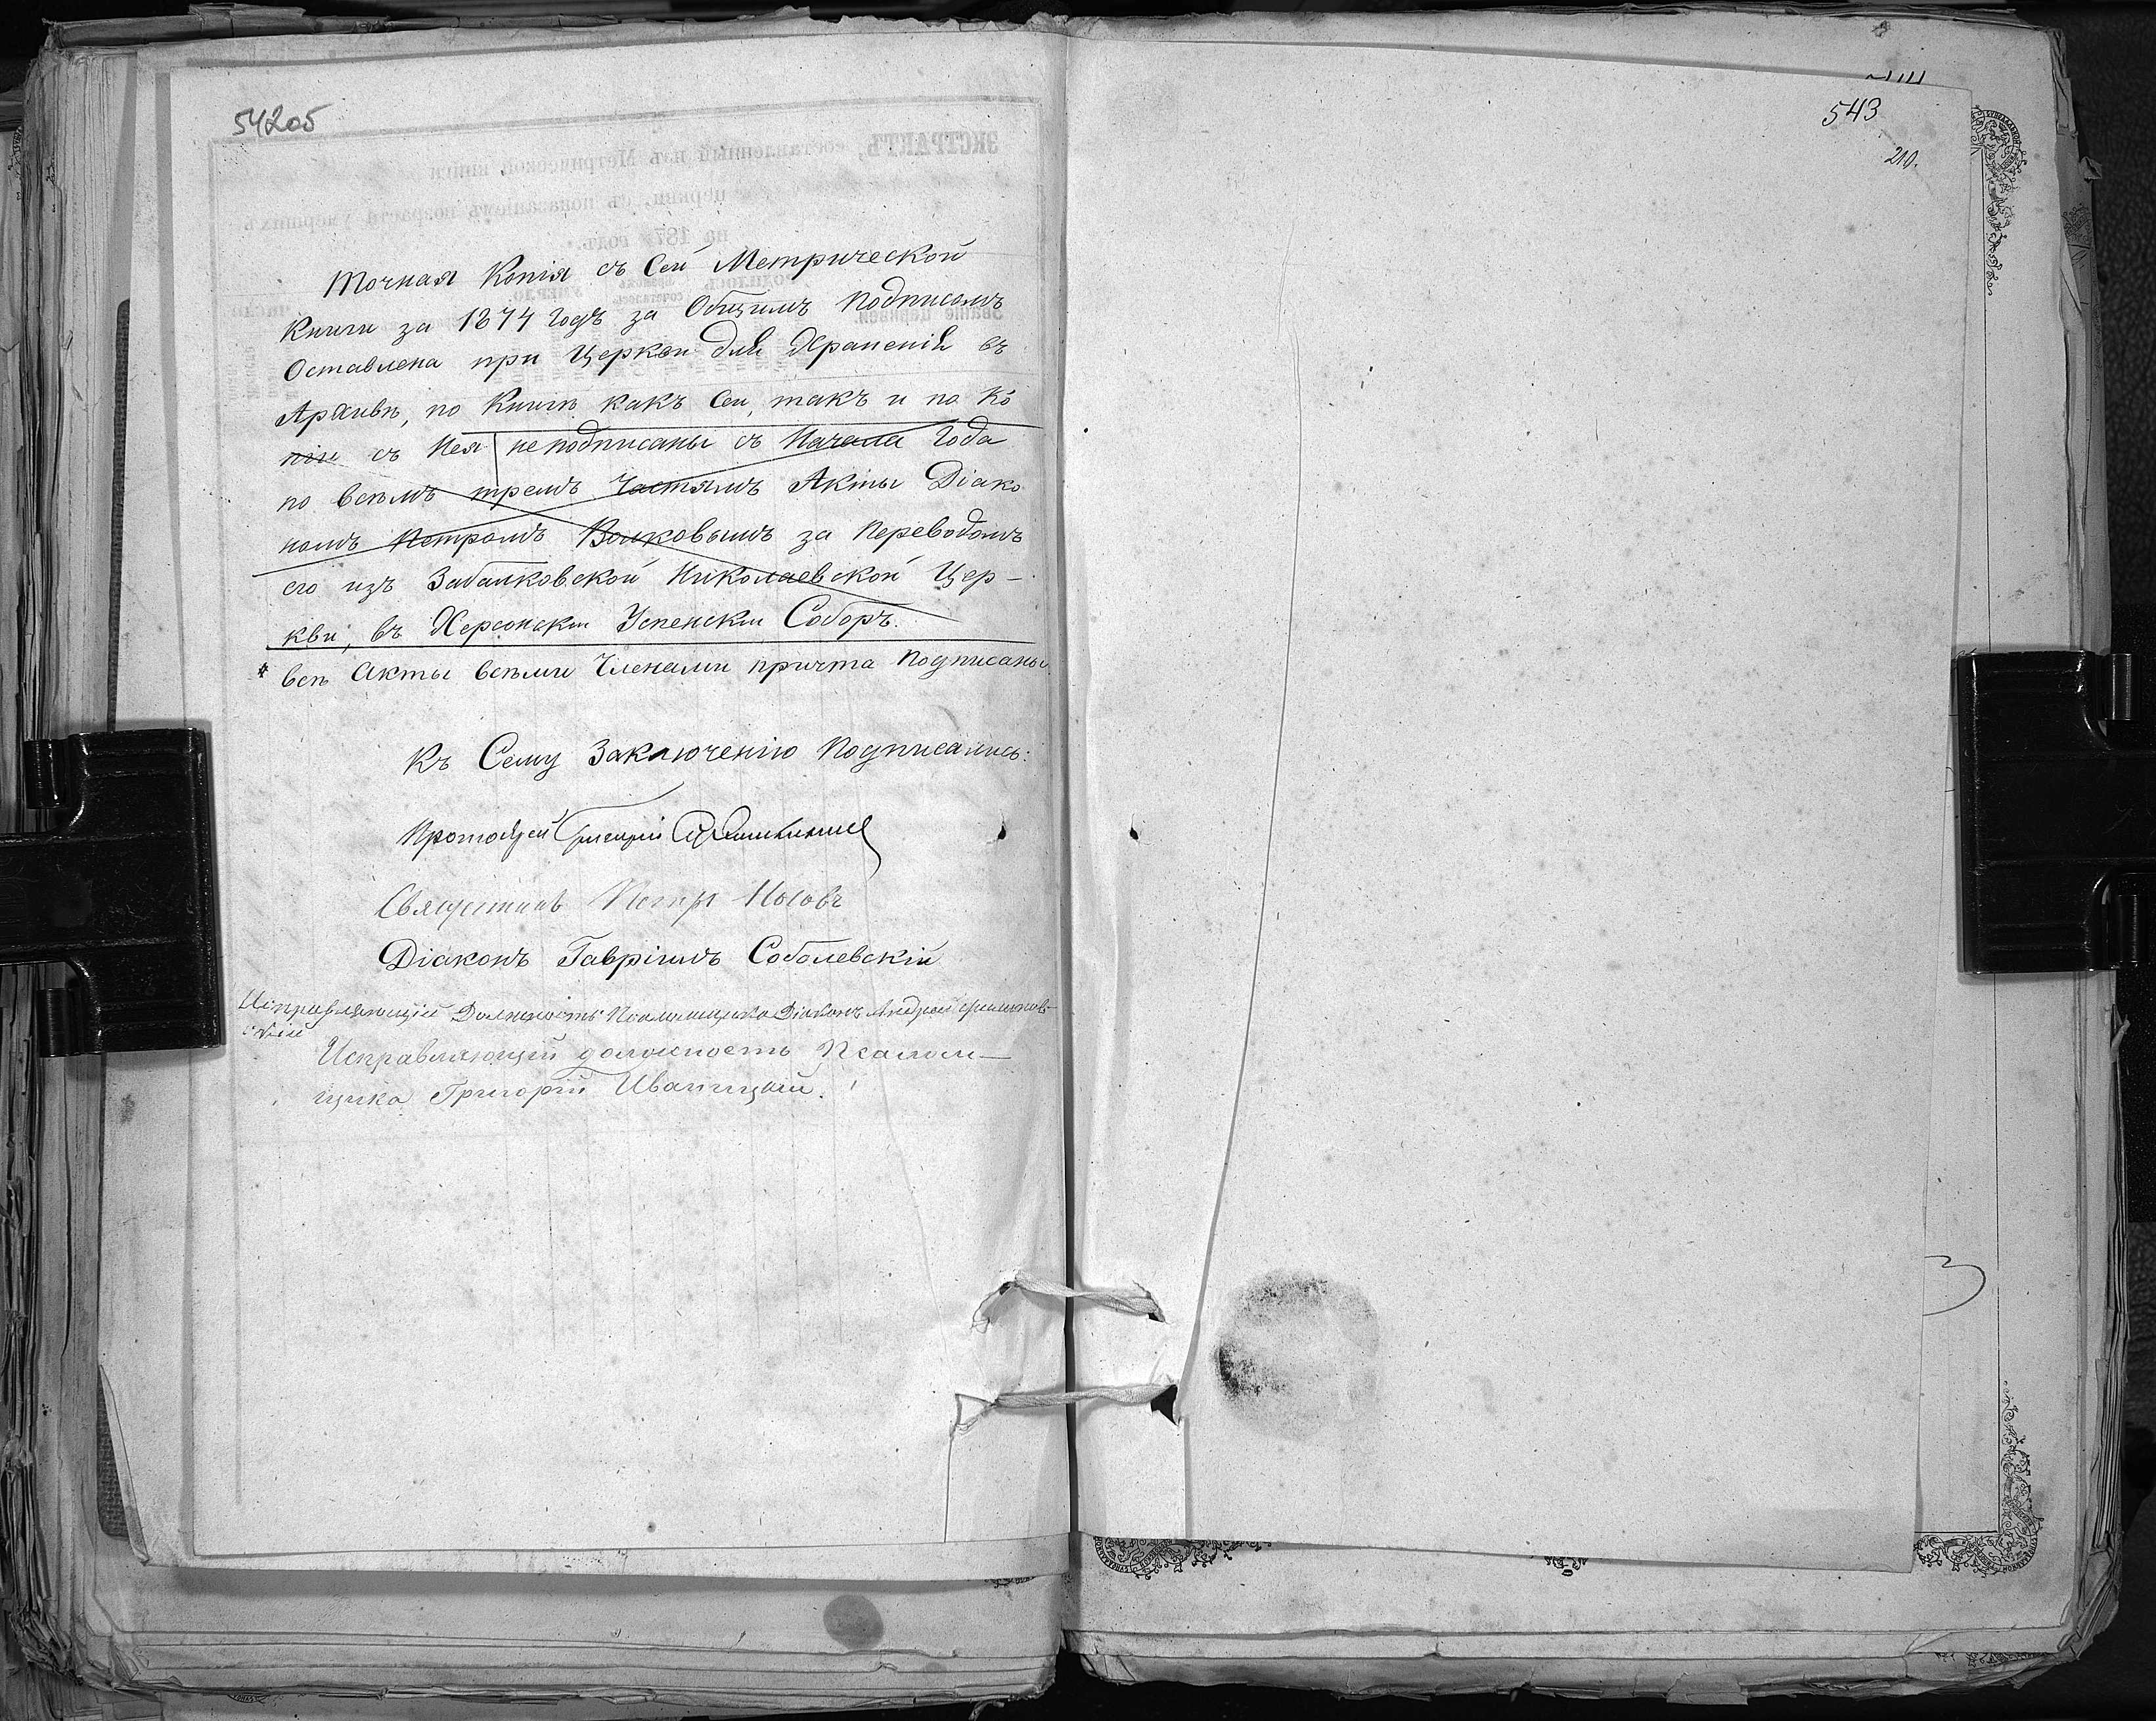 542об
Точная Копія съ Сей Метрической
Книги за 1874 годъ за Общимъ Подписомъ
Оставлена при Церкви для Храненія въ
Архивѣ, по Книгѣ какъ Сей, такъ и по Ко
піи съ Нея не подписаны съ Начала Года
по всѣмъ тремъ Частямъ Акты Діако
номъ Петромъ Волковымъ за Переводомъ
его изъ Забалковской Николаевской Цер-
кви, въ Херсонскій Успенскій Соборъ.
* всѣ Акты всѣми Членами причта Подписаны
Къ Сему Заключенію Подписались:
Протоіерей Григорій
Священникъ Петръ Носовъ
Діаконъ Гавріилъ Соболевскій
Исправляющій Должность Псаломщика Діаконъ Андрей
скій
Исправляющій должность Псалом-
щика Григорій Иваницкій.
ЭКСТРАКТЪ, составленный изъ Метрической книги
церкви, съ показаніемъ возраста умершихъ
на 187 годъ.
Званіе церквей.
543
210.